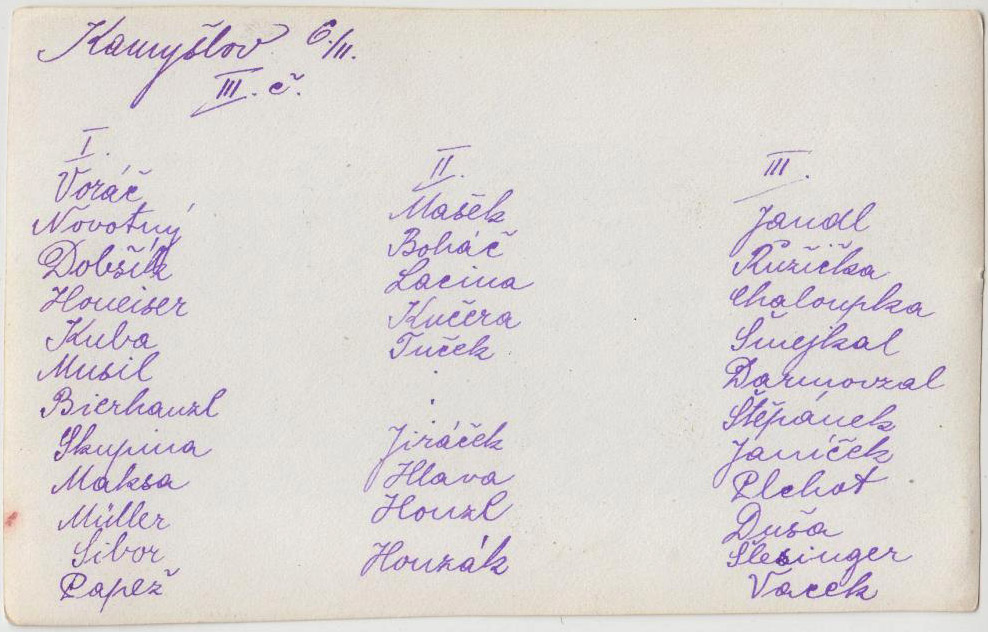 Kamyšlov 6./II.
III. č.
I.
Voráč
Novotný
Dobšík
Honeiser
Kuba
Musil
Bierhanzl
Skupina
Maksa
Müller
Sibor
Papež
II.
Mašek
Boháč
Lacina
Kučera
Tuček
.
.
Jiráček
Hlava
Honzl
Honzák
III.
Jandl
Růžička
Chaloupka
Šmejkal
Darmovzal
Štěpánek
Janíček
Plchot
Duša
Šlesinger
Vacek